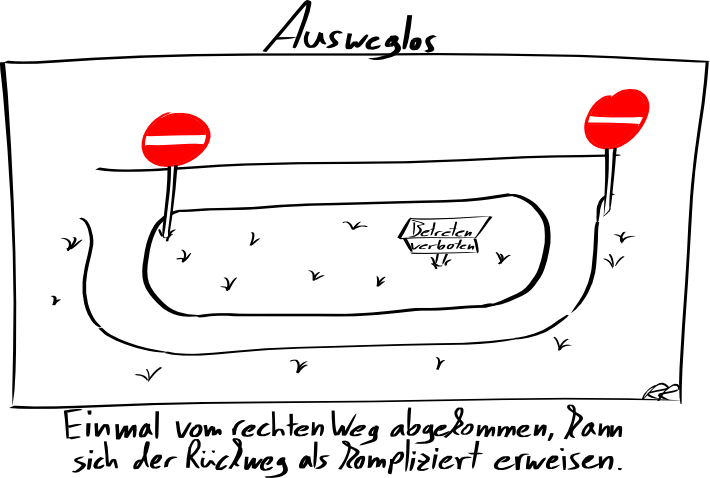 Ausweglos
Betreten
verboten
RK
Einmal vom rechten Weg abgekommen, kann
sich der Rückweg als kompliziert erweisen.